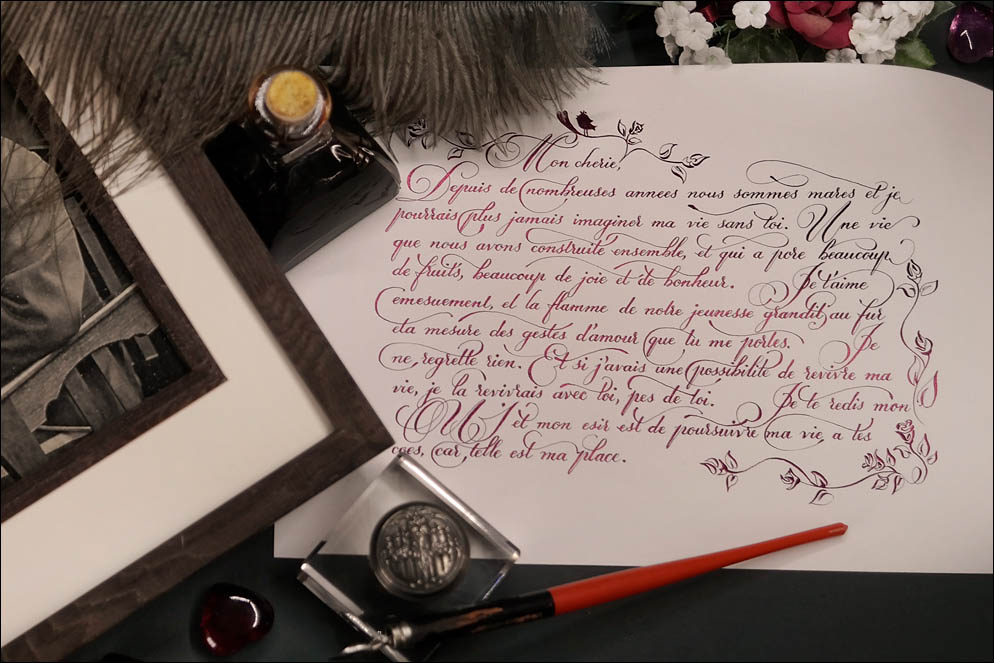 Mon cherie,
Depuis de nombreuses annees nous sommes mares et je
pourrais plus jamais imaginer ma vie sans toi. Une vie
que nous avons construite ensemble, et qui a pore beaucoup
de fruits, beaucoup de joie et de bonheur. Je t'aime
emesuement, et la flamme de notre jeunesse grandit au fur
eta mesure des gestes d'amour que tu me portes. Je
ne, regrette rien. Et si j'avais une possibilite de revivre ma
vie, je la revivrais avec toi, pes de toi. Je te redis mon
et mon esir est de poursuivre ma vie, a tes
coes, car, telle est ma place.